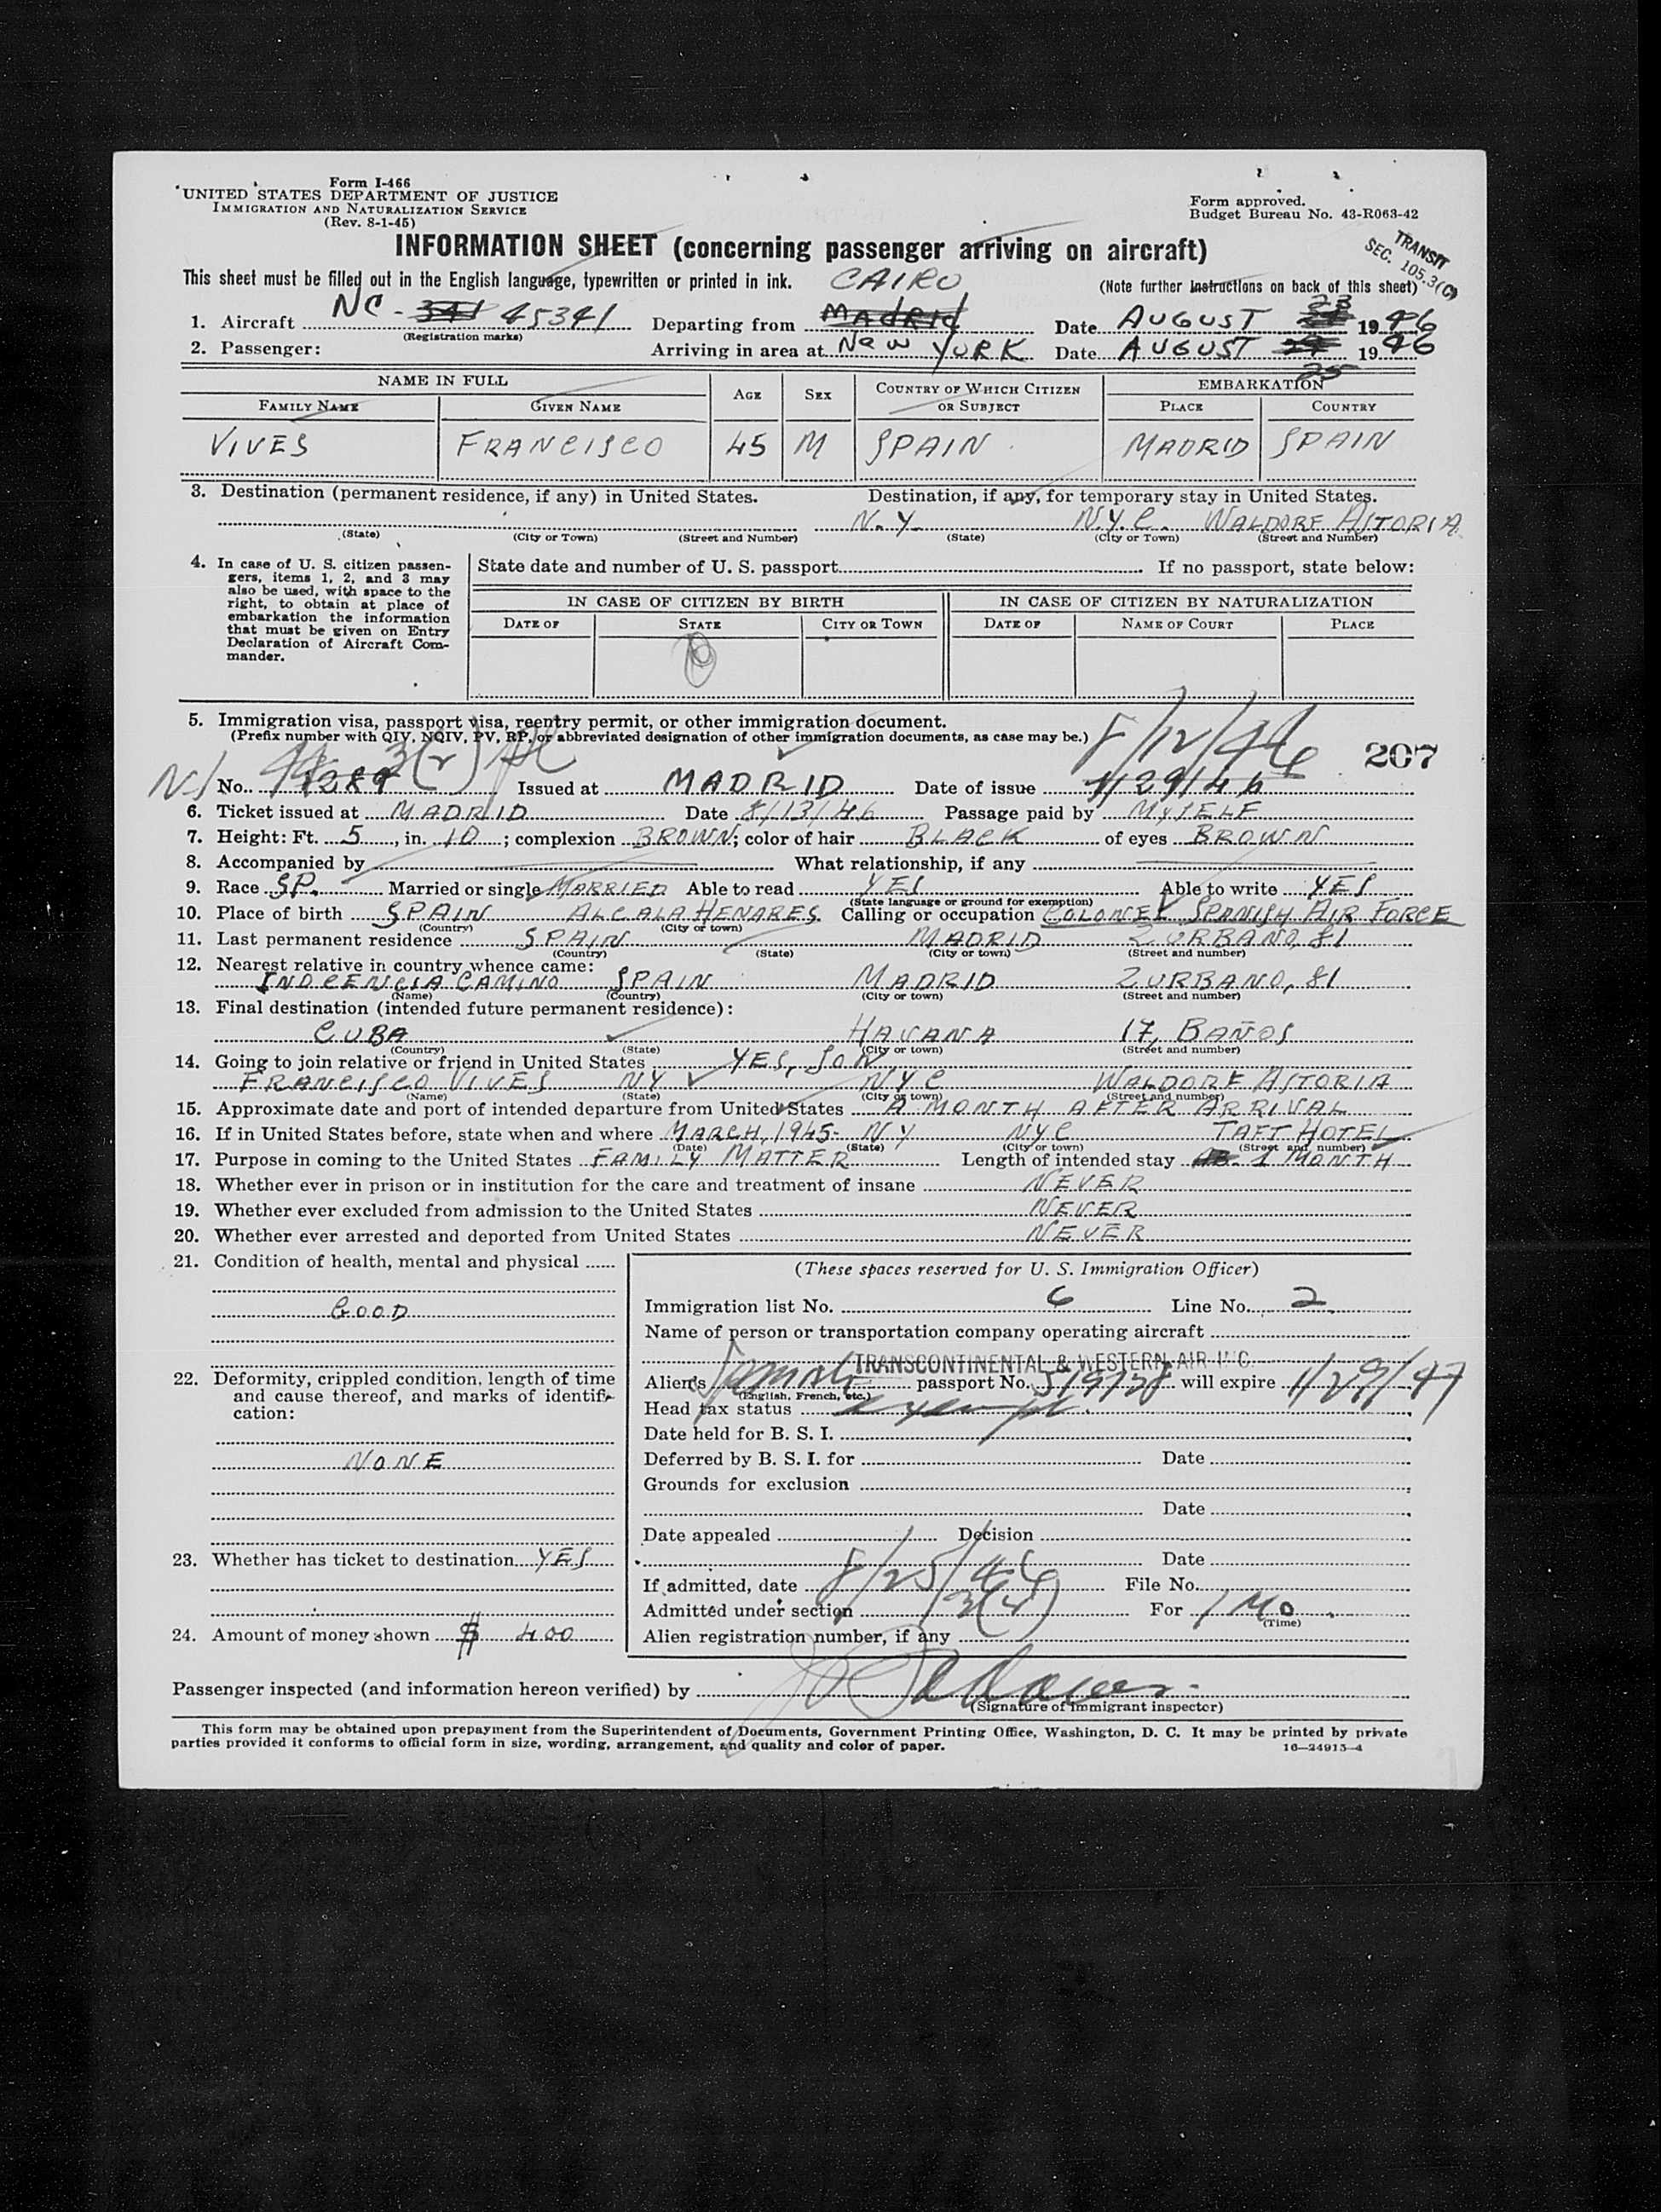 Form I-466
UNITED STATES DEPARTMENT OF JUSTICE
IMMIGRATION AND NATURALIZATION SERVICE
(Rev. 8-1-45)
Form approved.
Budget Bureau No. 43-R063-42
INFORMATION SHEET (concerning passenger arriving on aircraft)
TRANSIT
SEC. 105.3(C)
This sheet must be filled out in the English language, typewritten or printed in ink. CAIRO (Note further instructions on back of this sheet)
1. Aircraft NC-341 45341 Departing from MADRID Date AUGUST 23 1946
(Registration marks)
2. Passenger: Arriving in area at New YORK Date AUGUST 25 1946
NAME IN FULL AGE SEX COUNTRY OF WHICH CITIZEN OR SUBJECT EMBARKATION
FAMILY NAME GIVEN NAME PLACE COUNTRY
VIVES FRANCISCO 45 M SPAIN MADRID SPAIN
3. Destination (permanent residence, if any) in United States. Destination, if any, for temporary stay in United States.
N.Y. N.Y.C. WALDORF ASTORIA
(State) (City or Town) (Street and Number) (State) (City or Town) (Street and Number)
4. In case of U. S. citizen passengers, items 1, 2, and 3 may also be used, with space to the right, to obtain at place of embarkation the information that must be given on Entry Declaration of Aircraft Commander.
State date and number of U. S. passport If no passport, state below:
IN CASE OF CITIZEN BY BIRTH IN CASE OF CITIZEN BY NATURALIZATION
DATE OF STATE CITY OR TOWN DATE OF NAME OF COURT PLACE
5. Immigration visa, passport visa, reentry permit, or other immigration document.
(Prefix number with QIV, NQIV, PV, RP, or abbreviated designation of other immigration documents, as case may be.) 8/12/46
207
No. 1289 Issued at MADRID Date of issue 1/29/46
6. Ticket issued at MADRID Date 8/13/46 Passage paid by MYSELF
7. Height: Ft. 5, in. 10; complexion BROWN; color of hair BLACK of eyes BROWN
8. Accompanied by What relationship, if any
9. Race SP. Married or single MARRIED Able to read YES Able to write YES
(State language or ground for exemption)
10. Place of birth SPAIN ALCALA HENARES Calling or occupation COLONEL SPANISH AIR FORCE
(Country) (City or town)
11. Last permanent residence SPAIN MADRID ZURBANO, 81
(Country) (State) (City or town) (Street and number)
12. Nearest relative in country whence came:
INOCENCIA CAMINO SPAIN MADRID ZURBANO, 81
(Name) (Country) (City or town) (Street and number)
13. Final destination (intended future permanent residence):
CUBA HAVANA 17, BAÑOS
(Country) (State) (City or town) (Street and number)
14. Going to join relative or friend in United States YES, SON
FRANCISCO VIVES NY NYC WALDORF ASTORIA
(Name) (State) (City or town) (Street and number)
15. Approximate date and port of intended departure from United States A MONTH AFTER ARRIVAL
16. If in United States before, state when and where MARCH, 1945- NY NYC TAFT HOTEL
(Date) (State) (City or town) (Street and number)
17. Purpose in coming to the United States FAMILY MATTER Length of intended stay 1 MONTH
18. Whether ever in prison or in institution for the care and treatment of insane NEVER
19. Whether ever excluded from admission to the United States NEVER
20. Whether ever arrested and deported from United States NEVER
21. Condition of health, mental and physical
GOOD
22. Deformity, crippled condition, length of time and cause thereof, and marks of identification:
NONE
23. Whether has ticket to destination YES
24. Amount of money shown $ 400
(These spaces reserved for U. S. Immigration Officer)
Immigration list No. 6 Line No. 2
Name of person or transportation company operating aircraft
TRANSCONTINENTAL & WESTERN AIR INC.
Alien's Spanish passport No. 519128 will expire 1/29/47
(English, French, etc.)
Head tax status exempt
Date held for B. S. I.
Deferred by B. S. I. for Date
Grounds for exclusion
Date
Date appealed Decision
Date
If admitted, date 8/25/46 File No.
Admitted under section For 1 Mo.
(Time)
Alien registration number, if any
Passenger inspected (and information hereon verified) by
(Signature of immigrant inspector)
This form may be obtained upon prepayment from the Superintendent of Documents, Government Printing Office, Washington, D. C. It may be printed by private
parties provided it conforms to official form in size, wording, arrangement, and quality and color of paper. 16—24915-4